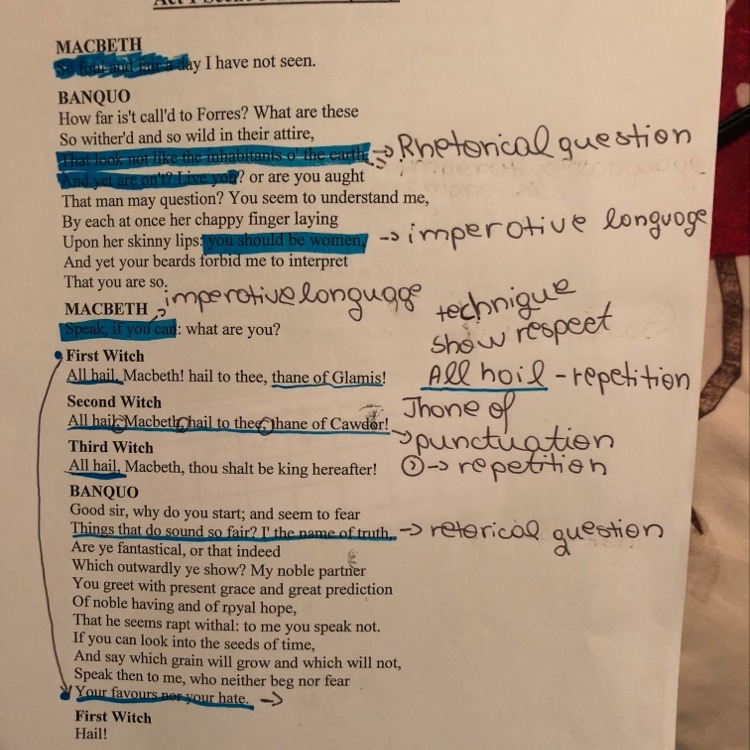 MACBETH
So foul and fair a day I have not seen.
BANQUO
How far is't call'd to Forres? What are these
So wither'd and so wild in their attire,
That look not like the inhabitants o' the earth, → Rhetorical question
And yet are on't? Live you? or are you aught
That man may question? You seem to understand me,
By each at once her chappy finger laying
Upon her skinny lips: you should be women, → imperotive longuoge
And yet your beards forbid me to interpret
That you are so.
MACBETH → imperotive longuage
Speak, if you can: what are you?
technique
show respect
First Witch
All hail, Macbeth! hail to thee, thane of Glamis!
All hoil - repetition
Second Witch
All hail, Macbeth, hail to thee, thane of Cawdor!
Thone of
→ punctuation
Third Witch
All hail, Macbeth, thou shalt be king hereafter!
→ repetition
BANQUO
Good sir, why do you start; and seem to fear
Things that do sound so fair? I' the name of truth, → retorical question
Are ye fantastical, or that indeed
Which outwardly ye show? My noble partner
You greet with present grace and great prediction
Of noble having and of royal hope,
That he seems rapt withal: to me you speak not.
If you can look into the seeds of time,
And say which grain will grow and which will not,
Speak then to me, who neither beg nor fear
Your favours nor your hate. →
First Witch
Hail!